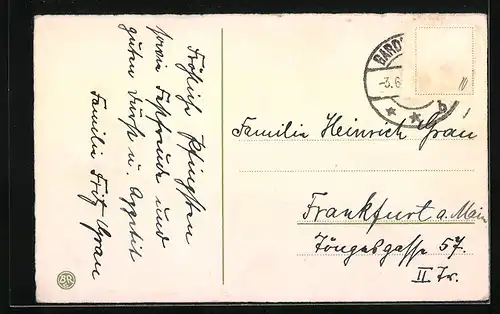 Fröhliche Pfingsten
sowie Festfreude und
guten Durst u. Appetit
Familie Fritz Grau
BARO
-3.6
b
Familie Heinrich Grau
Frankfurt a. Main
Töngesgasse 57.
II Tr.